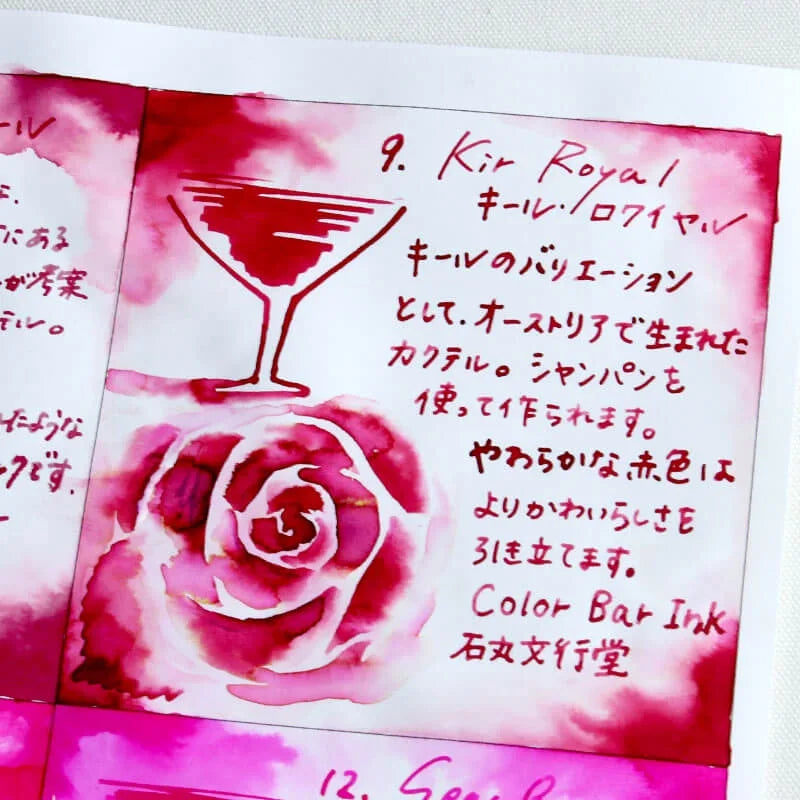 ール
にある
が考案
テル。
たような
ックです。
9. Kir Royal
キール・ロワイヤル
キールのバリエーション
として、オーストリアで生まれた
カクテル。シャンパンを
使って作られます。
やわらかな赤色は
よりかわいらしさを
引き立てます。
Color Bar Ink
石丸文行堂
12.